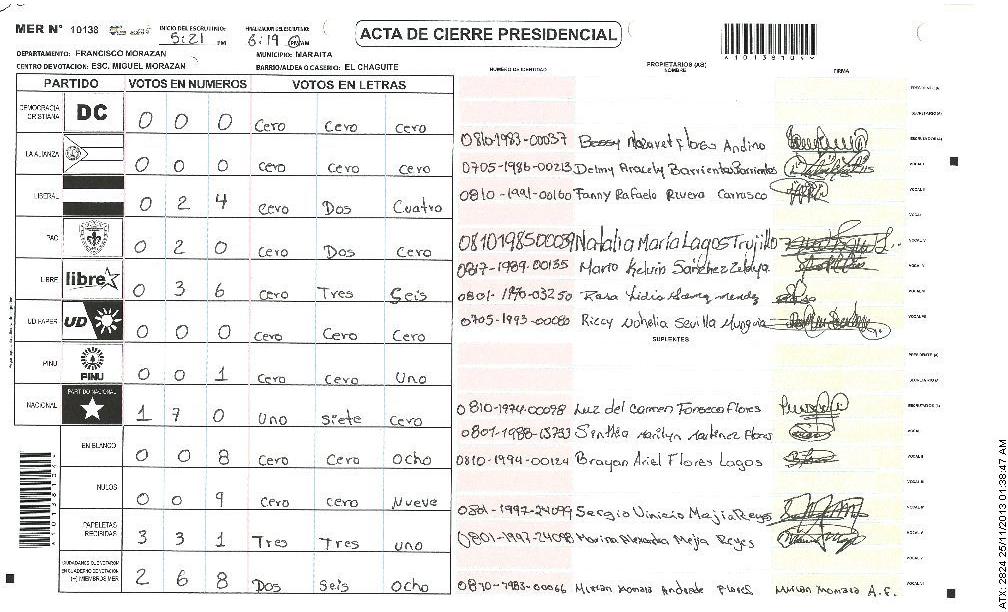 MER N° 10138
INICIO DEL ESCRUTINIO: 5:21 PM
FINALIZACION DEL ESCRUTINIO: 6:19 PM AM
ACTA DE CIERRE PRESIDENCIAL
DEPARTAMENTO: FRANCISCO MORAZAN
MUNICIPIO: MARAITA
CENTRO DE VOTACION: ESC. MIGUEL MORAZAN
BARRIO/ALDEA O CASERIO: EL CHAGUITE
PARTIDO VOTOS EN NUMEROS VOTOS EN LETRAS
DEMOCRACIA CRISTIANA DC 0 0 0 Cero Cero Cero
LA ALIANZA 0 0 0 Cero Cero Cero
LIBERAL 0 2 4 Cero Dos Cuatro
PAC 0 2 0 Cero Dos Cero
LIBRE libre 0 3 6 Cero Tres Seis
UD FAPER UD 0 0 0 Cero Cero Cero
PINU PINU 0 0 1 Cero Cero Uno
NACIONAL PARTIDO NACIONAL 1 7 0 Uno Siete Cero
EN BLANCO 0 0 8 Cero Cero Ocho
NULOS 0 0 9 Cero Cero Nueve
PAPELETAS RECIBIDAS 3 3 1 Tres Tres uno
(+) MIEMBROS MER 2 6 8 Dos Seis Ocho
NUMERO DE IDENTIDAD PROPIETARIOS (AS) NOMBRE FIRMA
0810-1993-00037 Bessy Nazaret Flores Andino
0705-1986-00213 Delmy Aracely Barrientos Barrientos
0810-1991-00160 Fanny Rafaela Rivera Carrasco
0810198500039 Natalia María Lagos Trujillo
0817-1989-00135 Mario Kelvin Sánchez Zelaya
0801-1970-03250 Rosa Lidia
0705-1993-00080 Riccy Nohelia Sevilla Munguia
SUPLENTES
0810-1974-00098 Luz del Carmen Fonseca Flores
0801-1988-13733 Sinthia Marilyn Martinez Flores
0810-1994-00124 Brayan Ariel Flores Lagos
0801-1997-24099 Sergio Vinicio Mejia Reyes
0801-1997-24098 Marina Alexandra Mejia Reyes
0810-1983-00066 Mirian Xomara Andrade Flores Mirian Xomara A. F.
A10138104
ATX-2824 25/11/2013 01:38:47 AM